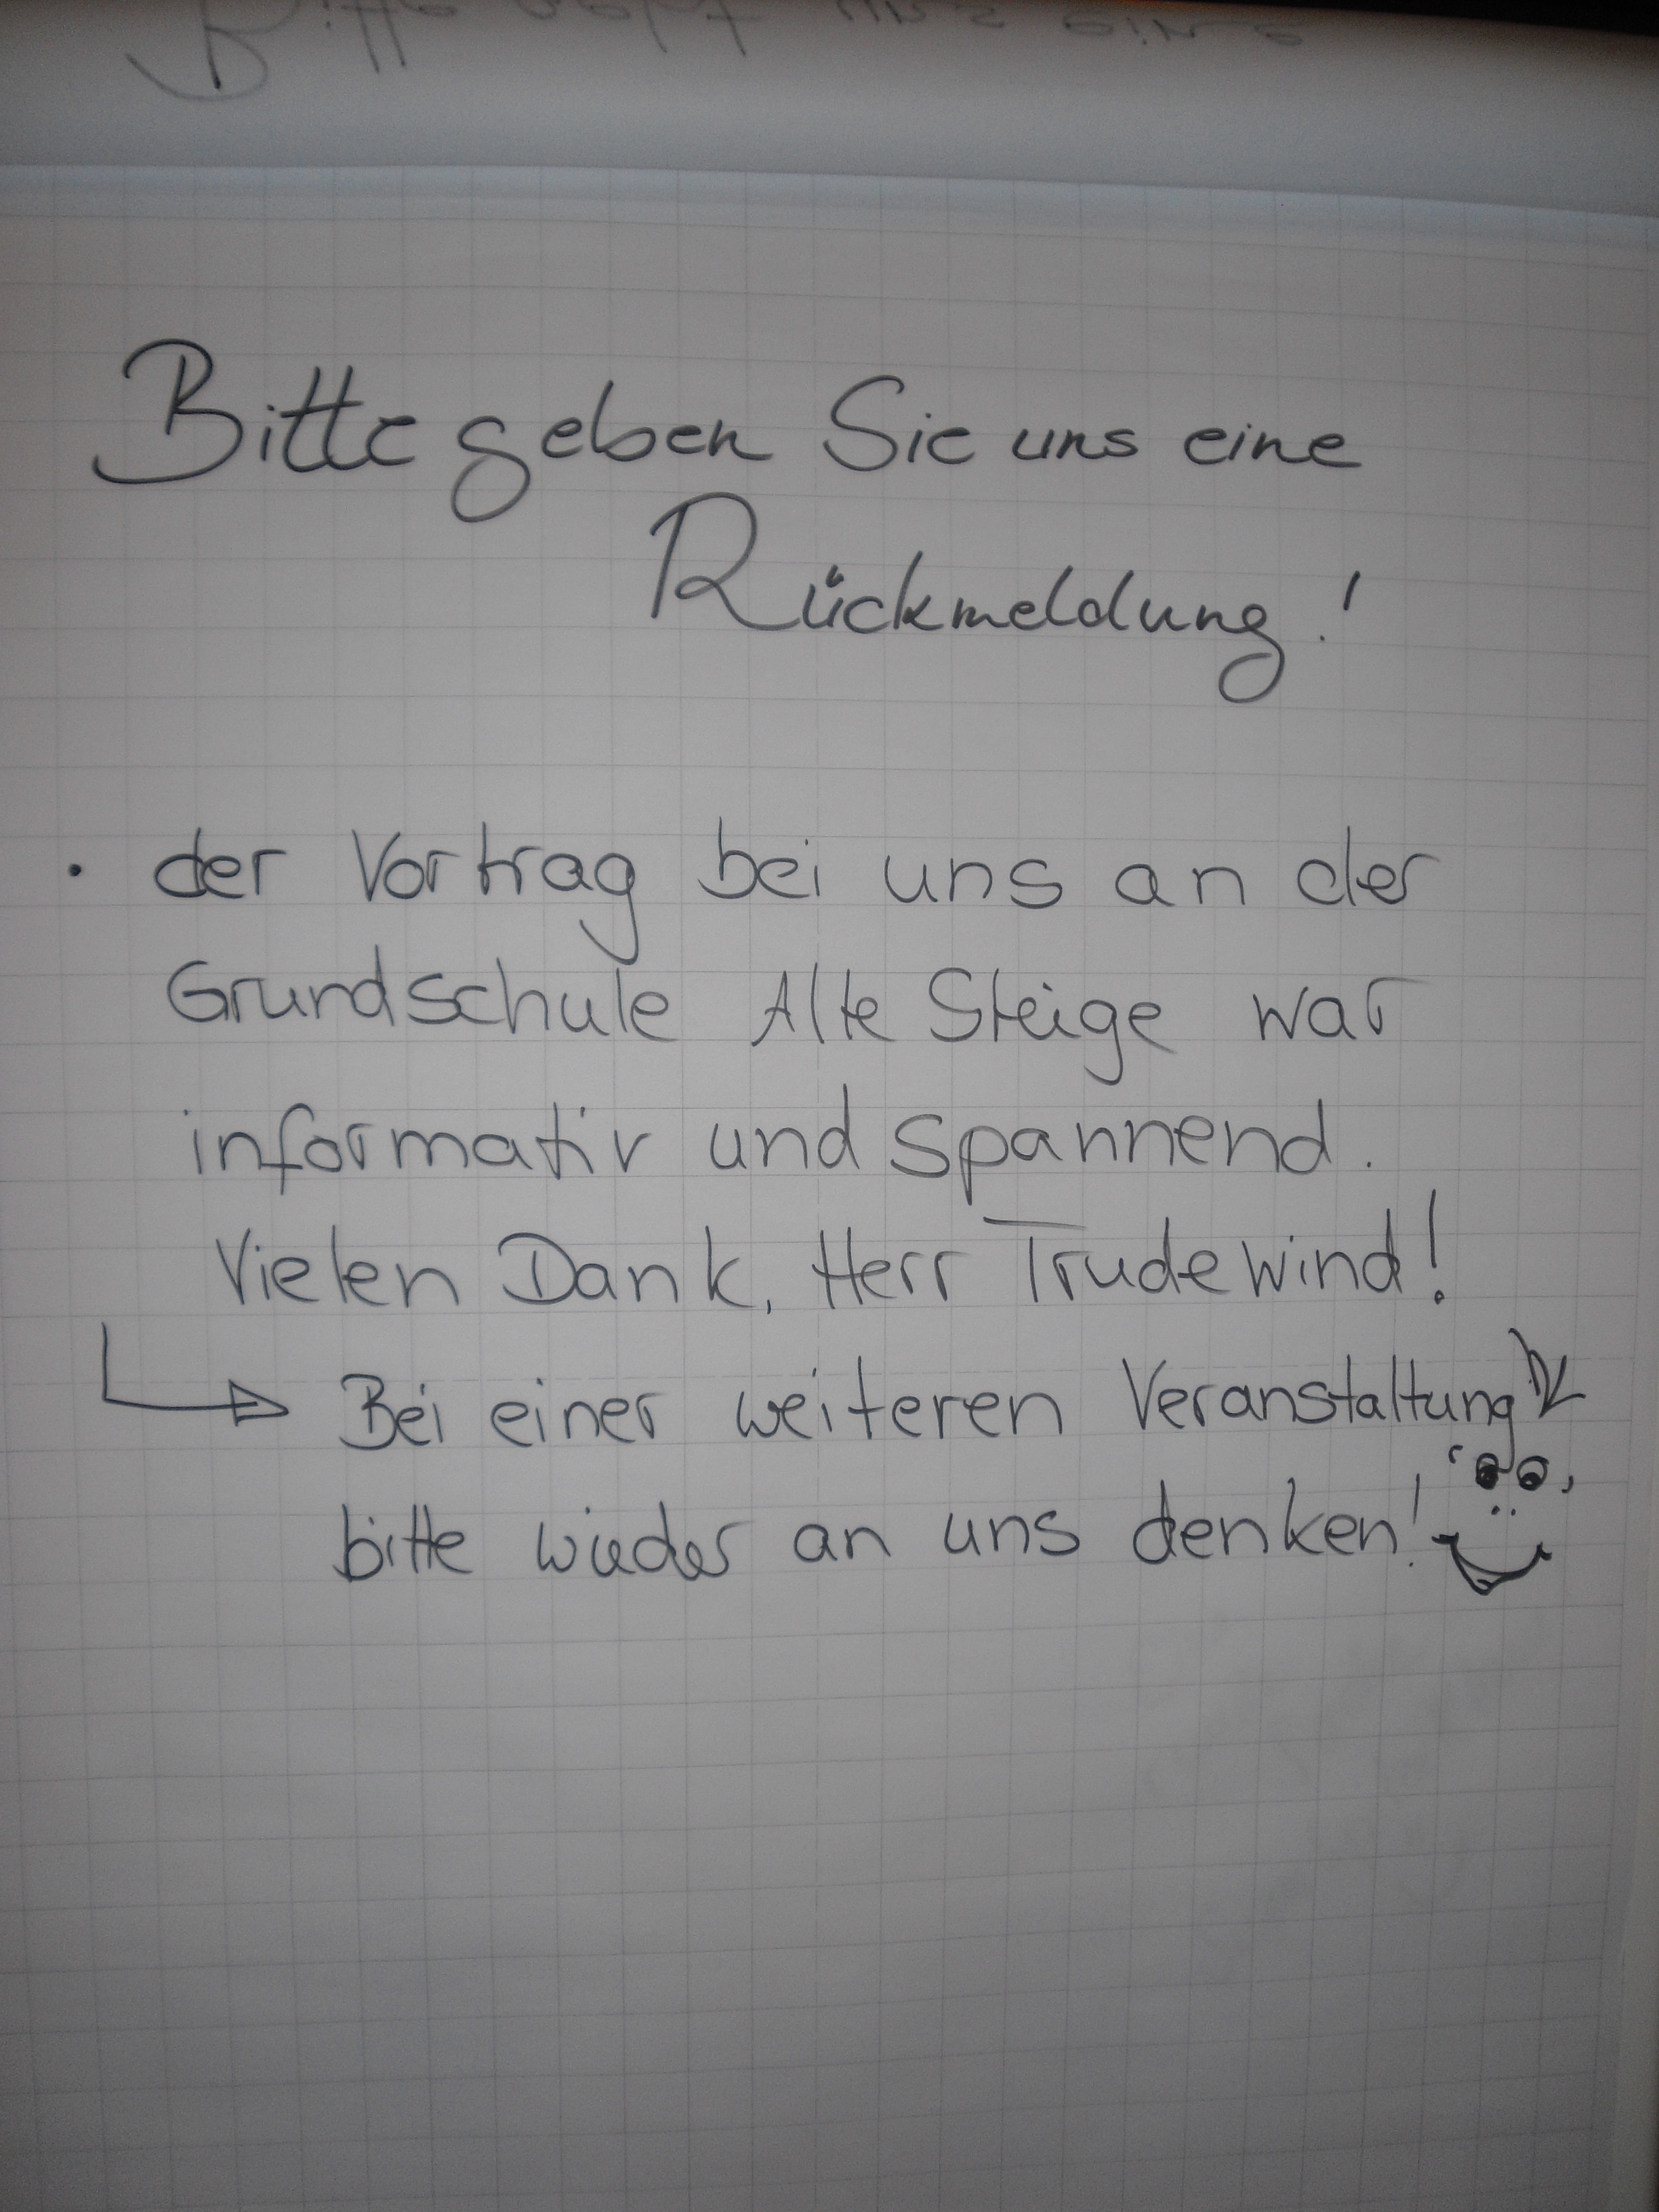 Bitte geben Sie uns eine
Rückmeldung!
· der Vortrag bei uns an der
Grundschule Alte Steige war
informativ und spannend.
Vielen Dank, Herr Trudewind!
Bei einer weiteren Veranstaltung
bitte wieder an uns denken!